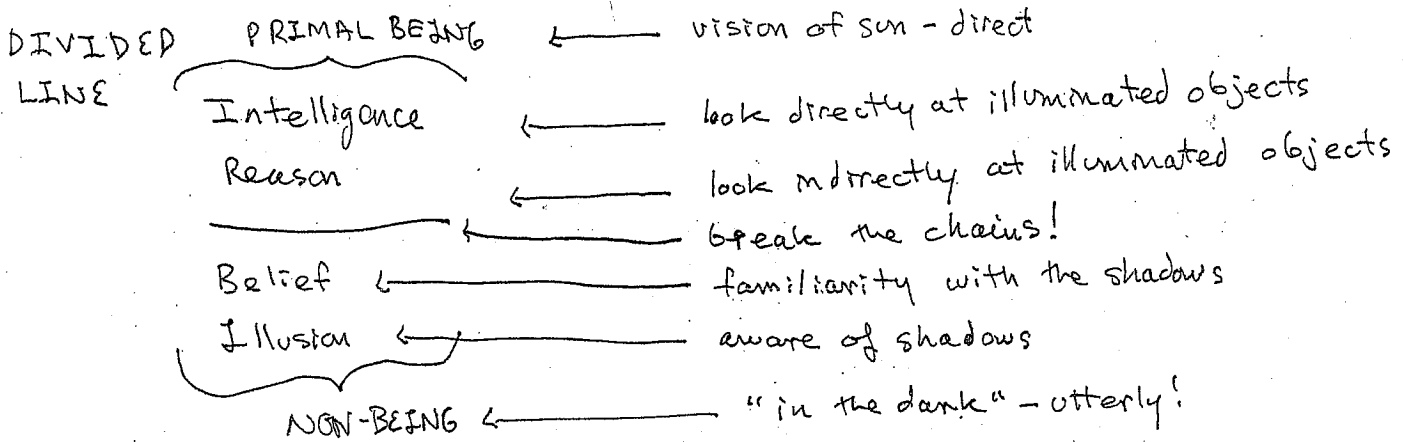 DIVIDED PRIMAL BEING ← vision of sun - direct
LINE
Intelligence ← look directly at illuminated objects
Reason ← look indirectly at illuminated objects
← break the chains!
Belief ← familiarity with the shadows
Illusion ← aware of shadows
NON-BEING ← "in the dark" - utterly!